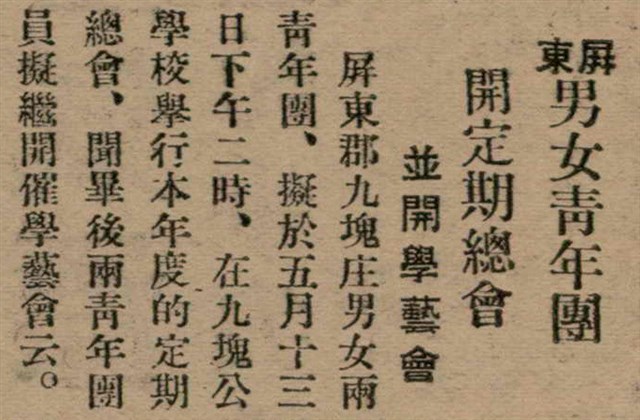 屏東男女靑年團
開定期總會
並開學藝會
屏東郡九塊庄男女兩
靑年團、擬於五月十三
日下午二時、在九塊公
學校擧行本年度的定期
總會、聞畢後兩靑年團
員擬繼開催學藝會云。